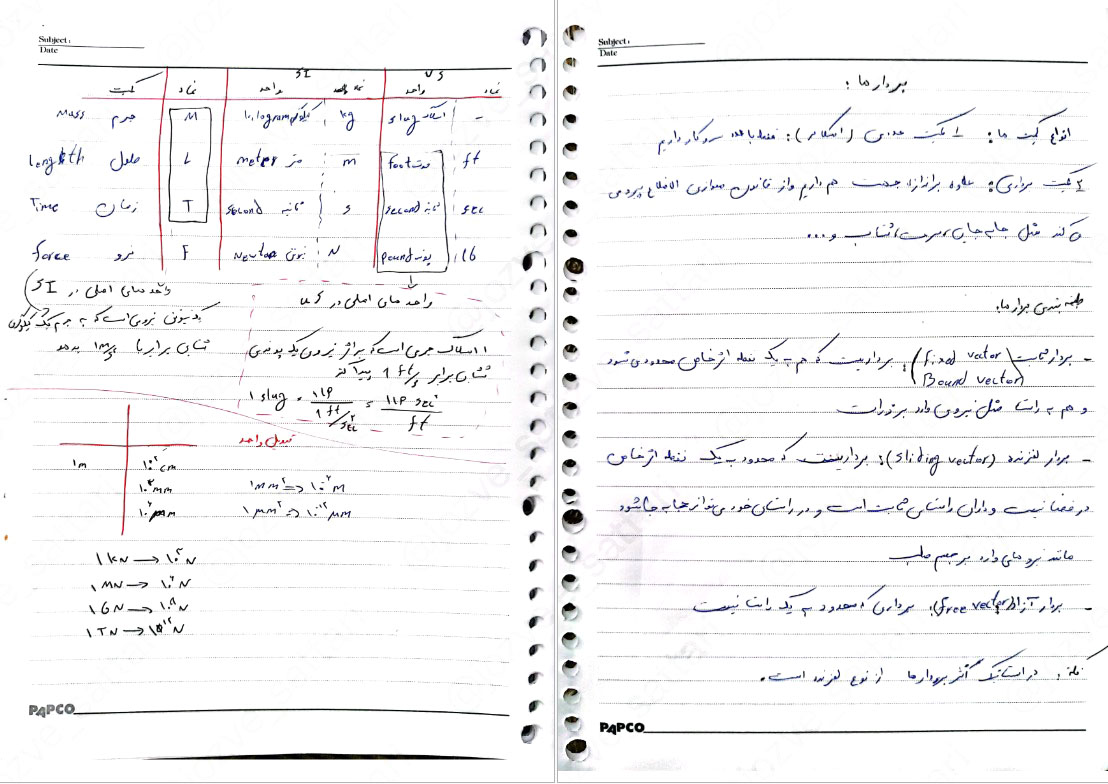 Subject:
Date
SI
US
کمیت
نماد
واحد
نماد واحد
واحد
نماد
Mass جرم M kilogram کیلوگرم kg slug اسلاگ -
Length طول L meter متر m foot فوت ft
Time زمان T second ثانیه s second ثانیه sec
force نیرو F Newton نیوتن N pound پوند lb
واحدهای اصلی در SI
واحدهای اصلی در US
یک نیوتن نیرویی است که به جرم یک کیلوگرم
شتابی برابر با 1 m/s² بدهد
۱ اسلاگ جرمی است که بر اثر نیروی یک پوندی
شتابی برابر 1 ft/s² پیدا کند
1 slug = 1 lb / 1 ft/sec² = 1 lb sec² / ft
تبدیل واحد
1m 10² cm
10³ mm 1 mm² => 10⁻⁶ m
10⁶ μm 1 μm² => 10⁻¹² μm
1 kN → 10³ N
1 MN → 10⁶ N
1 GN → 10⁹ N
1 TN → 10¹² N
PAPCO
Subject:
Date
بردارها:
انواع کمیت ها: ۱- کمیت عددی (اسکالر): فقط با عدد سروکار داریم
۲- کمیت برداری: علاوه بر اندازه جهت هم داریم و از قانون متوازی الاضلاع پیروی
می کند مثل جابه جایی، سرعت، شتاب و...
طبقه بندی بردارها:
- بردار ثابت (fixed vector / Bound vector): برداریست که هم به یک نقطه اثر خاص محدود می شود
و هم به راستا مثل نیروی وارد بر ذرات
- بردار لغزنده (sliding vector): برداریست که محدود به یک نقطه اثر خاص
در فضا نیست و دارای راستای ثابت است و در راستای خود می تواند جابه جا شود
مانند نیروهای وارد بر جسم صلب
- بردار آزاد (free vector): برداری که محدود به یک راستا نیست
نکته: در استاتیک اکثر بردارها از نوع لغزنده است.
PAPCO